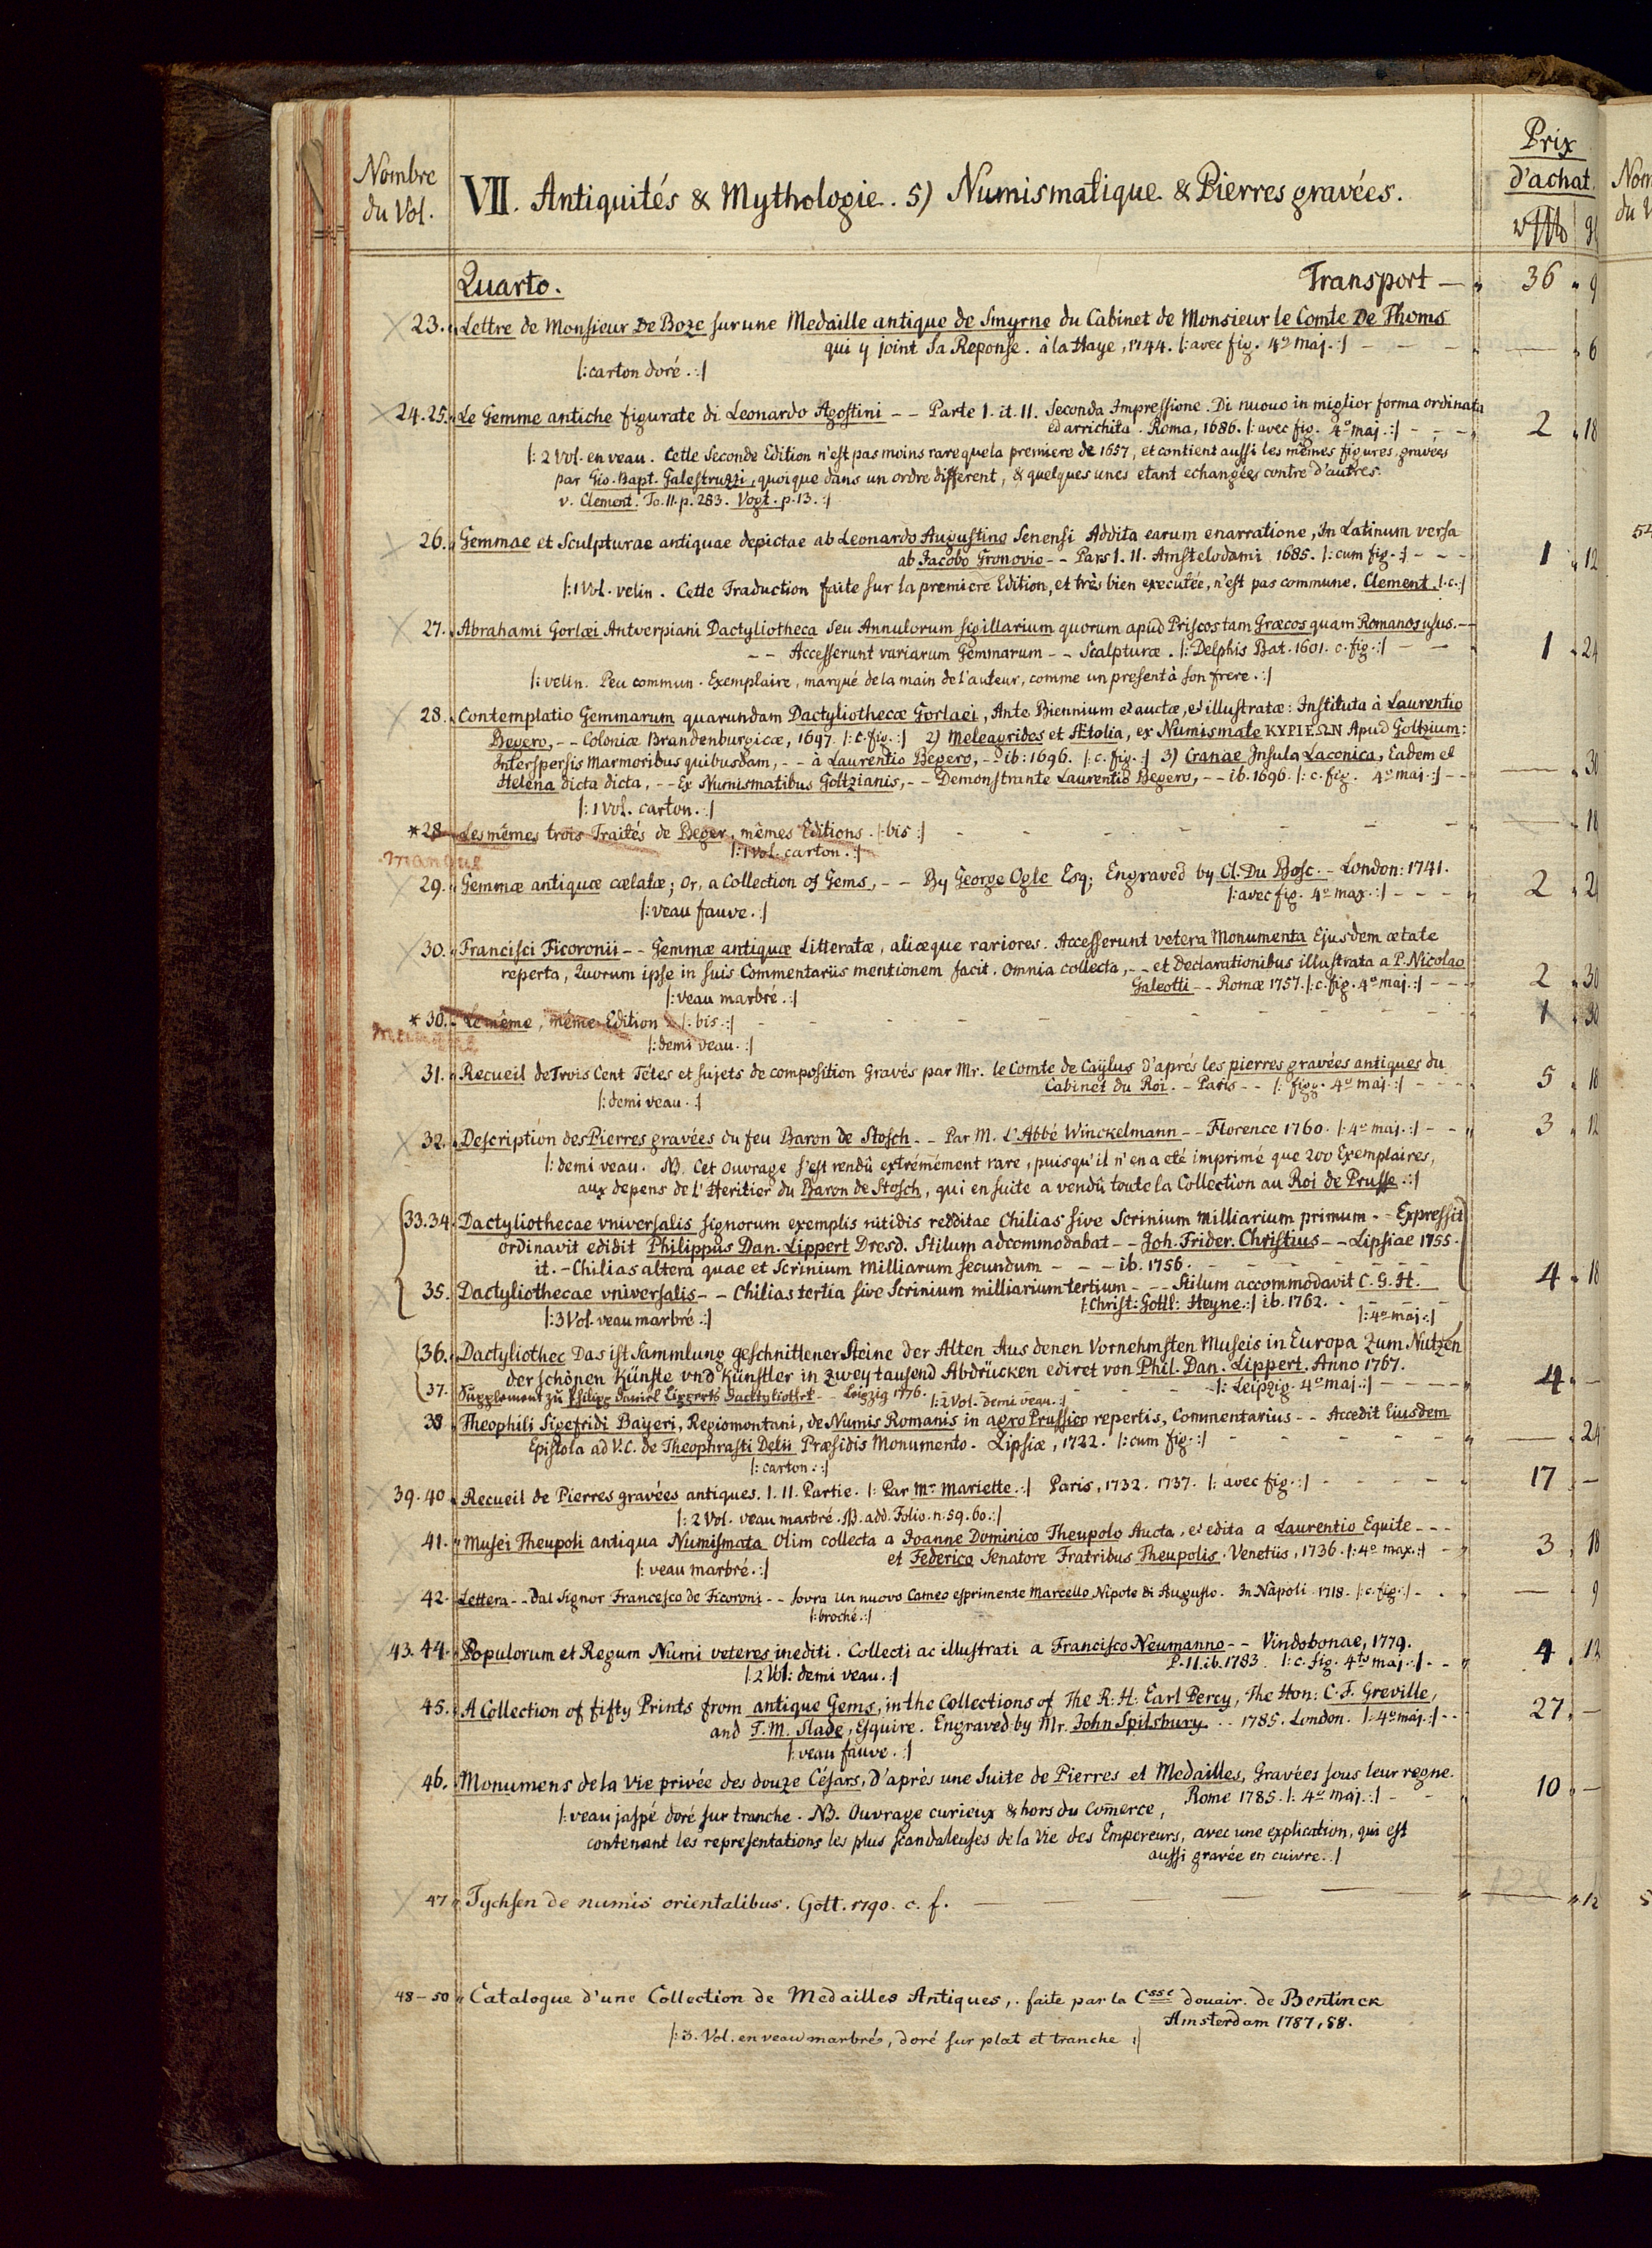 Nombre
du Vol.
VII. Antiquités & Mythologie. 5) Numismatique & Pierres gravées.
Prix
d'achat.
Quarto.
Transport — " 36 " 9
23. " Lettre de Monsieur De Boze sur une Medaille antique de Smyrne du Cabinet de Monsieur le Comte De Thoms
qui y joint sa Reponse. à la Haye, 1744. |: avec fig. 4º maj. :| — — — " — " 6
|: carton doré. :|
24. 25. " Le Gemme antiche figurate di Leonardo Agostini – – Parte I. it. II. Seconda Impressione. Di nuovo in miglior forma ordinata
ed arrichita. Roma, 1686. |: avec fig. 4º maj. :| – – – " 2 " 18
|: 2 Vol. en veau. Cette Seconde Edition n'est pas moins rare que la premiere de 1657, et contient aussi les mêmes figures, gravées
par Gio. Bapt. Galestruzzi, quoique dans un ordre different, & quelques unes etant echangées contre d'autres.
v. Clement. To. II. p. 283. Vogt. p. 13. :|
26. " Gemmae et Sculpturae antiquae depictae ab Leonardo Augustino Senensi Addita earum enarratione, In Latinum versa
ab Jacobo Gronovio – – Pars I. II. Amstelodami 1685. |: cum fig. :| – – – 1 " 12
|: 1 Vol. velin. Cette Traduction faite sur la premiere Edition, et très bien executée, n'est pas commune. Clement. l. c. :|
27. " Abrahami Gorlæi Antverpiani Dactyliotheca seu Annulorum sigillarium quorum apud Priscos tam Græcos quam Romanos usus. —
– – Accesserunt variarum Gemmarum – – Scalpturæ. |: Delphis Bat. 1601. c. fig. :| — — " 1 " 24
|: velin. Peu commun. Exemplaire, marqué de la main de l'auteur, comme un present à son frere. :|
28. " Contemplatio Gemmarum quarundam Dactyliothecæ Gorlaei, Ante Biennium et auctæ, et illustratæ: Instituta à Laurentio
Begero, – – Coloniæ Brandenburgicæ, 1697. |: c. fig. :| 2) Meleagrides et Ætolia, ex Numismate ΚΥΡΙΕΩΝ Apud Goltzium:
Interspersis Marmoribus quibusdam, – – à Laurentio Begero, – ib: 1696. |: c. fig. :| 3) Cranae Insula Laconica, Eadem et
Helena dicta dicta, – – Ex Numismatibus Goltzianis, – – Demonstrante Laurentio Begero, – – ib. 1696. |: c. fig. 4º maj. :| – – — " 30
|: 1 Vol. carton. :|
* 28 Les mêmes trois Traités de Beger, mêmes Editions. |: bis :| – – – – – – – — " 18
|: 1 Vol. carton. :|
manque
29. " Gemmæ antiquæ cælatæ; Or, a Collection of Gems, – – By George Ogle Esq; Engraved by Cl. Du Bosc. – London: 1741.
|: avec fig. 4º max. :| – – – " 2 " 21
|: veau fauve. :|
30. " Francisci Ficoronii – – Gemmæ antiquæ Litteratæ, aliæque rariores. Accesserunt vetera Monumenta Ejusdem ætate
reperta, Quorum ipse in suis Commentariis mentionem facit. Omnia collecta, – – et declarationibus illustrata a P. Nicolao
Galeotti – – Romæ 1757. |: c. fig. 4º maj. :| – – – 2 " 30
|: veau marbré. :|
* 30. " Le même, même Edition |: bis. :| – – – – – – – – 1 " 30
|: demi veau. :|
manque
31. " Recueil de Trois Cent Têtes et sujets de composition Gravés par Mr. le Comte de Caÿlus d'aprés les pierres gravées antiques du
Cabinet du Roi. – Paris – – |: figg. 4º maj. :| – – – 5 " 18
|: demi veau. :|
32. " Description des Pierres gravées du feu Baron de Stosch – – Par M. L'Abbé Winckelmann – – Florence 1760. |: 4º maj. :| – – " 3 " 12
|: demi veau. NB. Cet ouvrage s'est rendû extrémément rare, puisqu'il n'en a eté imprimé que 200 Exemplaires,
aux depens de l'Heritier du Baron de Stosch, qui ensuite a vendû toute la Collection au Roi de Prusse. :|
33. 34. Dactyliothecae vniversalis signorum exemplis nitidis redditae Chilias sive Scrinium milliarium primum – – Expressit
ordinavit edidit Philippus Dan. Lippert Dresd. Stilum adcommodabat – – Joh. Frider. Christius – – Lipsiae 1755.
it. – Chilias altera quae et Scrinium Milliarum secundum – – – ib. 1756. – – – – – –
35. Dactyliothecae vniversalis – – Chilias tertia sive Scrinium milliarium tertium – – – Stilum accommodavit C. G. H. 4 " 18
|: Christ: Gottl: Heyne. :| ib. 1762. – – – –
|: 3 Vol. veau marbré. :| |: 4º maj. :|
36. " Dactyliothec Das ist Sammlung geschnittener Steine der Alten Aus denen Vornehmsten Museis in Europa zum Nutzen
der schönen Künste vnd Künstler in zwey tausend Abdrücken ediret von Phil. Dan. Lippert. Anno 1767.
|: Leipzig. 4º maj. :| – – – – 4 " —
37. Supplement zu Philipp Daniel Lipperts Dactyliothek – – Leipzig 1776. |: 2 Vol. demi veau. :|
38 " Theophili Sigefridi Bayeri, Regiomontani, de Numis Romanis in agro Prussico repertis, Commentarius – – Accedit Eiusdem
Epistola ad V. C. de Theophrasti Delii Præsidis Monumento. Lipsiæ, 1722. |: cum fig. :| – – – – – — " 24
|: carton. :|
39. 40 " Recueil de Pierres gravées antiques. I. II. Partie. |: Par Mr Mariette. :| Paris, 1732. 1737. |: avec fig. :| – – – – " 17 " —
|: 2 Vol. veau marbré. NB. add. Folio. n. 59. 60. :|
41. " Musei Theupoli antiqua Numismata Olim collecta a Joanne Dominico Theupolo Aucta, et edita a Laurentio Equite – – –
et Federico Senatore Fratribus Theupolis. Venetiis, 1736. |: 4º max. :| – " 3 " 18
|: veau marbré. :|
42. Lettera – – Dal Signor Francesco de Ficoroni – – sovra un nuovo Cameo esprimente Marcello Nipote di Augusto. In Nàpoli 1718. |: c. fig. :| – – — " 9
|: broché. :|
43. 44. " Populorum et Regum Numi veteres inediti. Collecti ac illustrati a Francisco Neumanno – – Vindobonae, 1779.
P. II. ib. 1783. |: c. fig. 4to maj. :| – – " 4 " 12
|: 2 Vol: demi veau. :|
45. " A Collection of fifty Prints from antique Gems, in the Collections of The R: H: Earl Percy, The Hon: C. F. Greville,
and T. M. Slade, Esquire. Engraved by Mr. John Spilsbury. . . 1785. London. |: 4º maj. :| – – 27 " —
|: veau fauve. :|
46. " Monumens de la Vie privée des douze Césars, d'aprés une Suite de Pierres et Medailles, Gravées sous leur regne.
Rome 1785. |: 4º maj. :| – – 10 " —
|: veau jaspé doré sur tranche. NB. Ouvrage curieux & hors du Com̄erce,
contenant les representations les plus scandaleuses de la Vie des Empereurs, avec une explication, qui est
aussi gravée en cuivre. :|
47 " Tychsen de numis orientalibus. Gott. 1790. c. f. — — — " — " 12
48 – 50 " Catalogue d'une Collection de Medailles Antiques, . faite par la Csse douair. de Bentinck
Amsterdam 1787, 88.
|: 3. Vol. en veau marbrés, doré sur plat et tranche :|